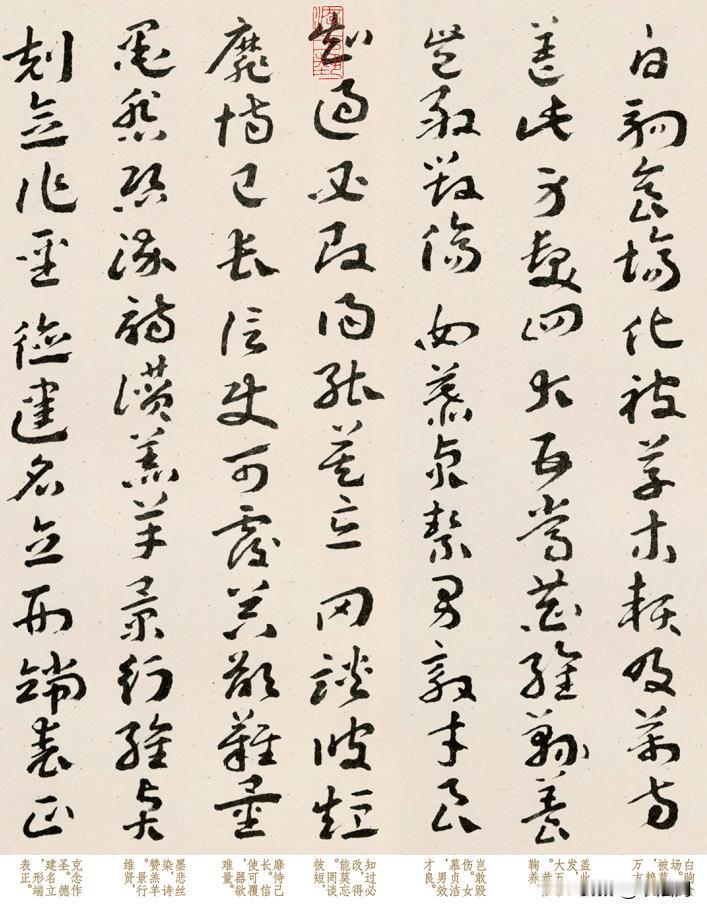 白駒食場化被草木賴及萬方
蓋此身髮四大五常恭惟鞠養
豈敢毀傷女慕貞絜男效才良
知過必改得能莫忘罔談彼短
靡恃己長信使可覆器欲難量
墨悲絲染詩讚羔羊景行維賢
剋念作聖德建名立形端表正
场。
被草
万方
盖此
发
大五
鞠养
岂敢毁
伤。女
慕贞洁
,男效
才良。
知过必
改,得
能莫忘
。罔谈
彼短,
靡恃己
长。信
使可覆
,器欲
难量。
墨悲丝
染,诗
赞羔羊
。景行
维贤,
克念作
圣。德
建名立
,形端
表正。